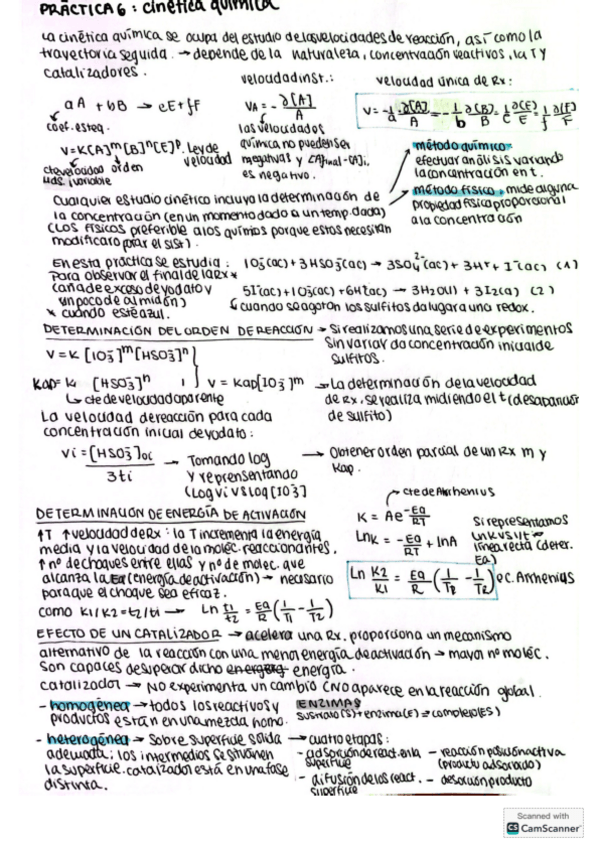 PRÁCTICA 6: cinética química
La cinética química se ocupa del estudio de las velocidades de reacción, así como la
trayectoria seguida. → depende de la naturaleza, concentración reactivos, la T y
catalizadores.
velocidad inst.:
velocidad única de Rx:
aA + bB → eE + fF
coef. esteq.
VA = - ∂[A]/A
V = -1/a ∂[A]/A = -1/b ∂[B]/B = 1/C ∂[E]/E = 1/f ∂[F]/F
V = K[A]^m [B]^n [E]^p. Ley de
velocidad
orden
cte velocidad
las velocidades
química no pueden ser
negativas y [A]final - [A]i
es negativo.
método químico
efectuar análisis variando
la concentración en t.
método físico, mide alguna
propiedad física proporcional
a la concentración
Cualquier estudio cinético incluye la determinación de
la concentración (en un momento dado a un temp. dada)
(Los físicos preferible a los químicos porque estos necesitan
modificar o parar el sist)
En esta práctica se estudia: IO3-(ac) + 3HSO3-(ac) → 3SO4^2-(ac) + 3H+ + I-(ac) (1)
Para observar el final de la Rx *
(añade exceso de yodato y
un poco de almidón)
* cuando esté azul.
5I-(ac) + IO3-(ac) + 6H+(ac) → 3H2O(l) + 3I2(a) (2)
cuando se agotan los sulfitos da lugar a une redox.
DETERMINACIÓN DEL ORDEN DE REACCIÓN → Si realizamos una serie de experimentos
sin variar da concentración inicial de
sulfitos.
V = K [IO3-]^m [HSO3-]^n
Kap = K [HSO3-]^n
V = Kap [IO3-]^m
→ La determinación de la velocidad
de Rx, se realiza midiendo el t (desaparición
de sulfito)
cte de velocidad aparente
La velocidad de reacción para cada
concentración inicial de yodato:
Vi = [HSO3-]oi / 3ti → Tomando log
y representando
(Log vi vs log [IO3-]
→ Obtener orden parcial de un Rx m y
Kap.
DETERMINACIÓN DE ENERGÍA DE ACTIVACIÓN
cte de Arrhenius
↑T ↑velocidad de Rx: la T incrementa la energía
media y la velocidad de la molec. reaccionantes.
↑ nº de choques entre ellas y nº de molec. que
alcanza la Ea (energía de activación) → necesario
para que el choque sea eficaz.
K = Ae^-Ea/RT
LnK = -Ea/RT + lnA
Si representamos
Ln K vs 1/t →
línea recta (deter.
Ea)
Ln K2/K1 = Ea/R (1/T2 - 1/T2) ec. Arrhenius
como K1/K2 = t2/t1 → Ln t1/t2 = Ea/R (1/T1 - 1/T2)
EFECTO DE UN CATALIZADOR → acelera una Rx. proporciona un mecanismo
alternativo de la reacción con una menor energía de activación → mayor nº moléc.
son capaces de superar dicho energía.
catalizador → No experimenta un cambio (no aparece en la reacción global.
- homogénea → todos los reactivos y
productos están en una mezcla homo.
ENZIMAS
sustrato (S) + enzima (E) → complejo (ES)
- heterogénea → Sobre superficie sólida
adecuada; los intermedios se sitúan en
la superficie. catalizador está en una fase
distinta.
→ cuatro etapas:
- adsorción de react. en la
superficie
- difusión de los react.
superficie
- reacción posición activa
(producto adsorbido)
- desorción producto
Scanned with
CS CamScanner